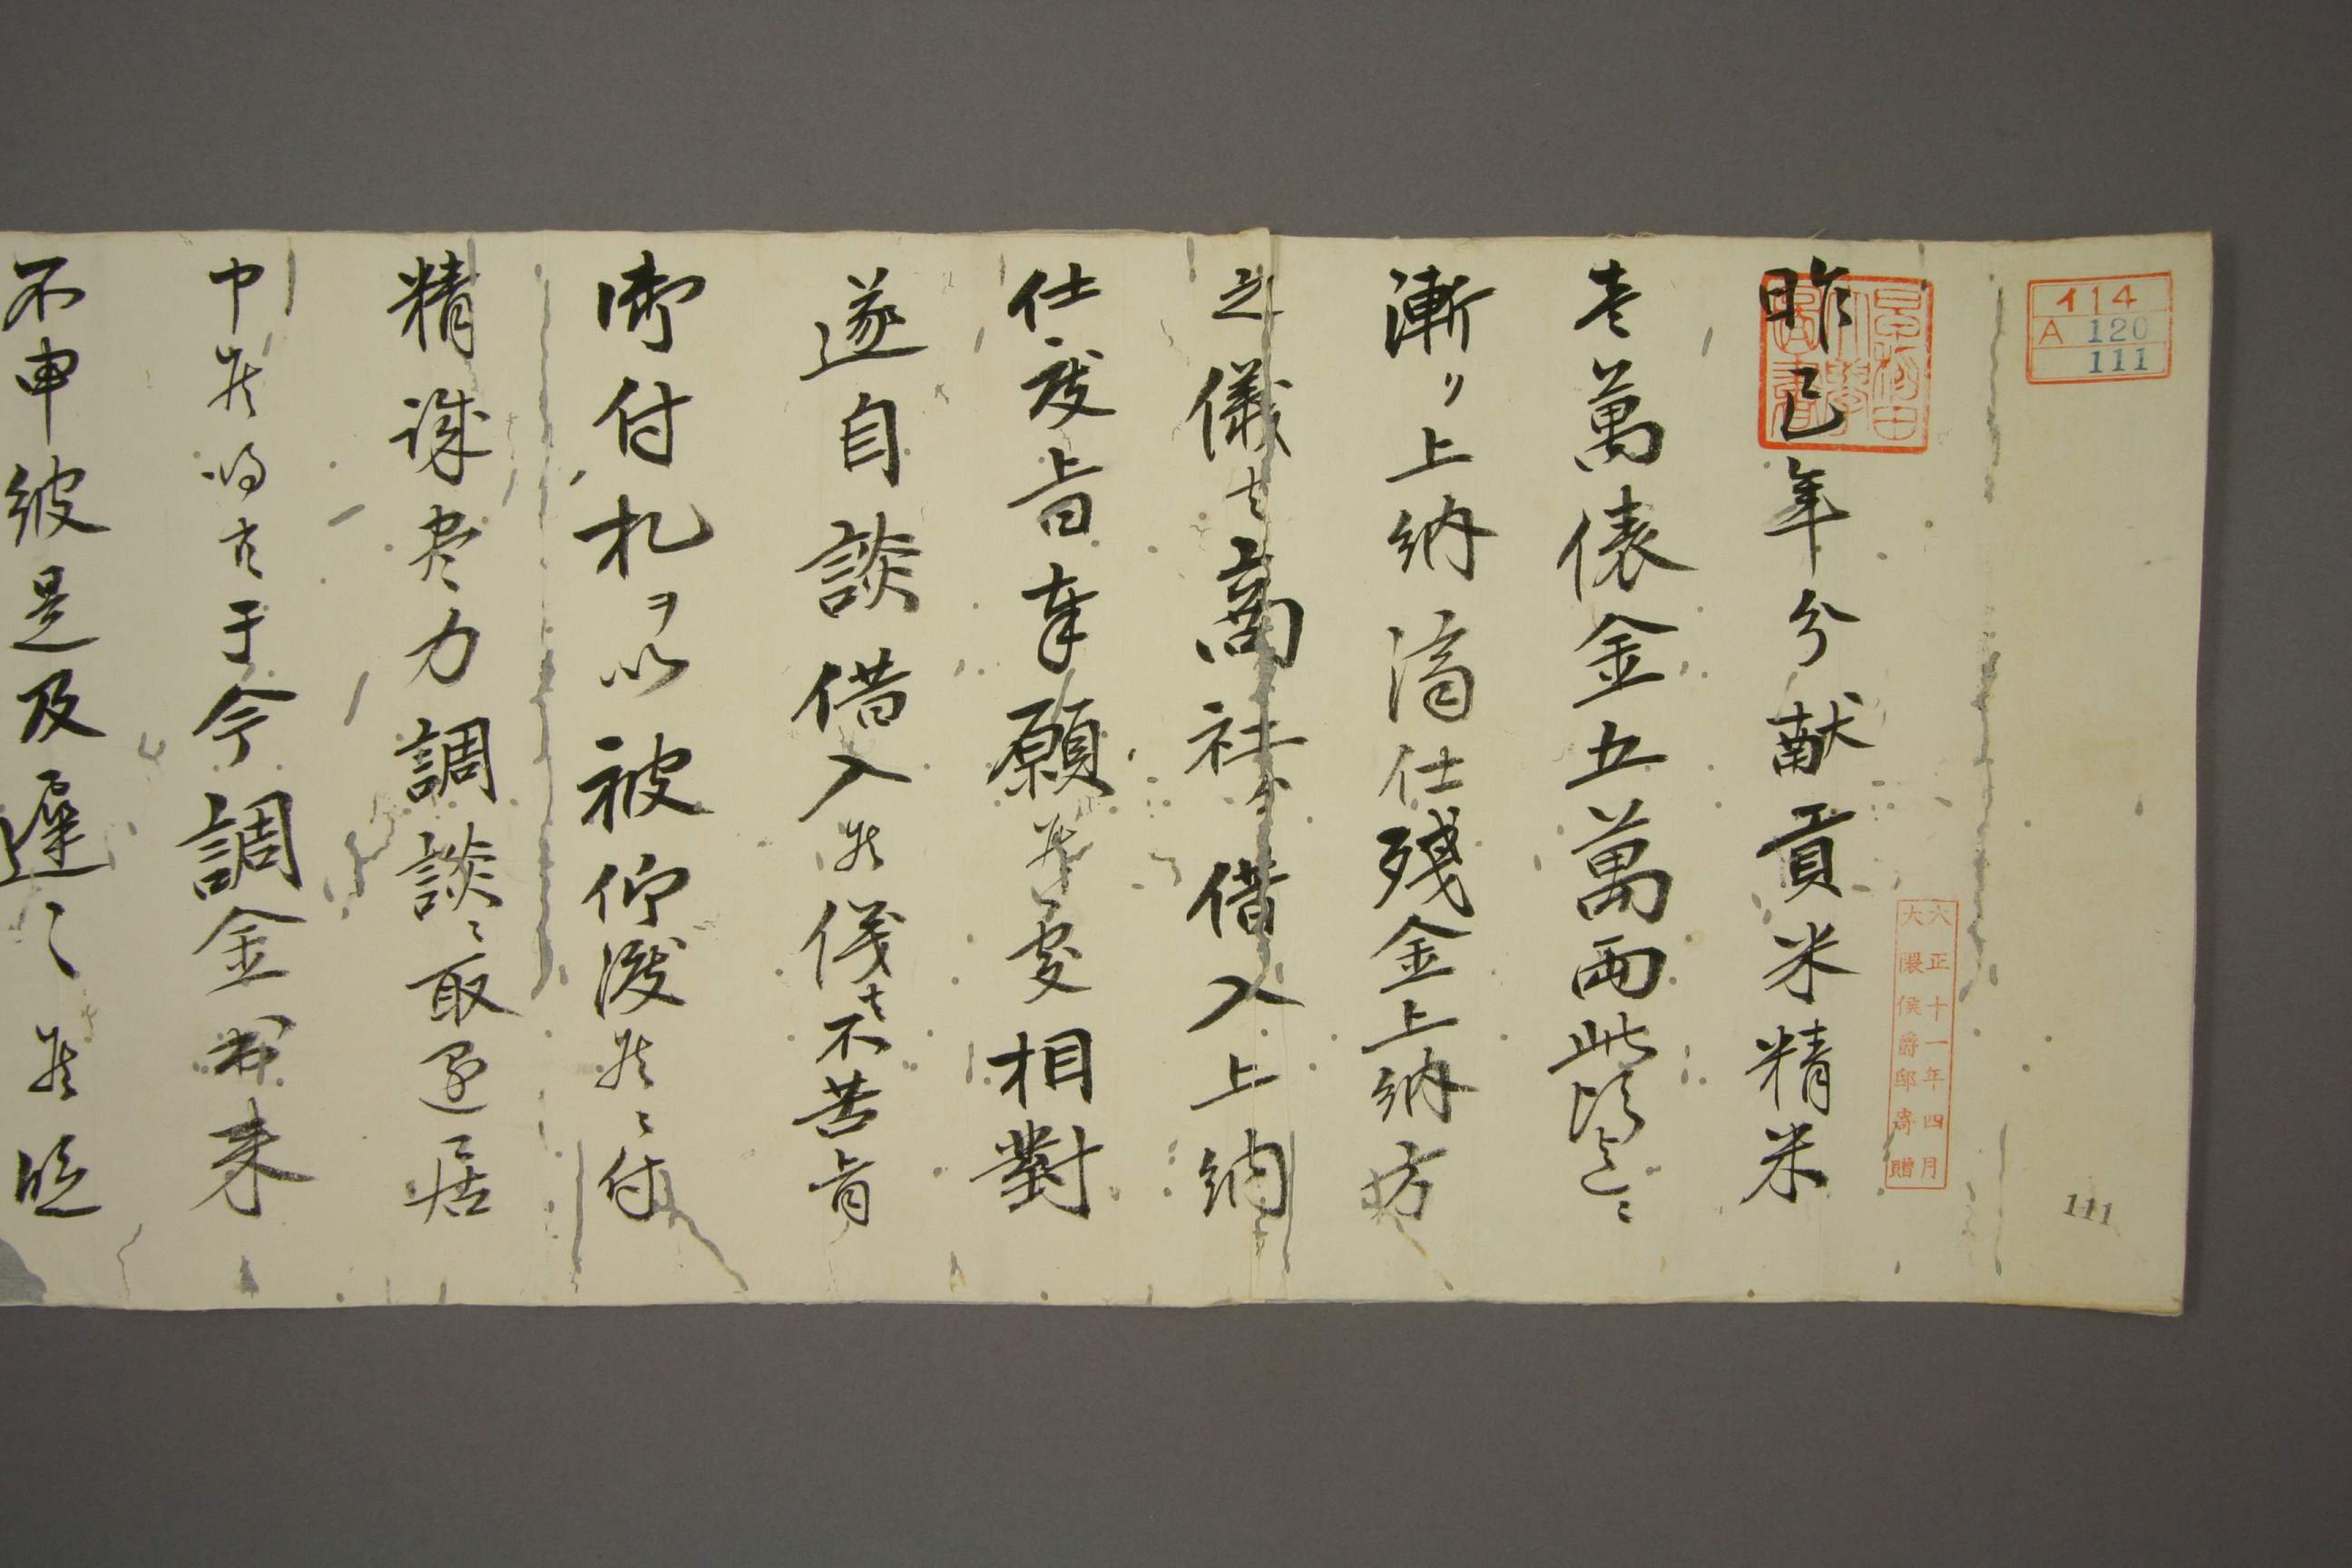 イ14
A 120
111
早稲田大學圖書
大正十一年四月
大隈侯爵邸寄贈
111
昨巳年分献貢米精米
壱萬俵金五萬両此
漸々上納済仕残金上納方
之儀者商社ゟ借入上納
仕度旨奉願候處相對
遂自談借入候儀者不苦旨
御付札ヲ以被仰渡候ニ付
精誠尽力調談ニ取運居
申候得共于今調金出来
不申彼是及遅々候段